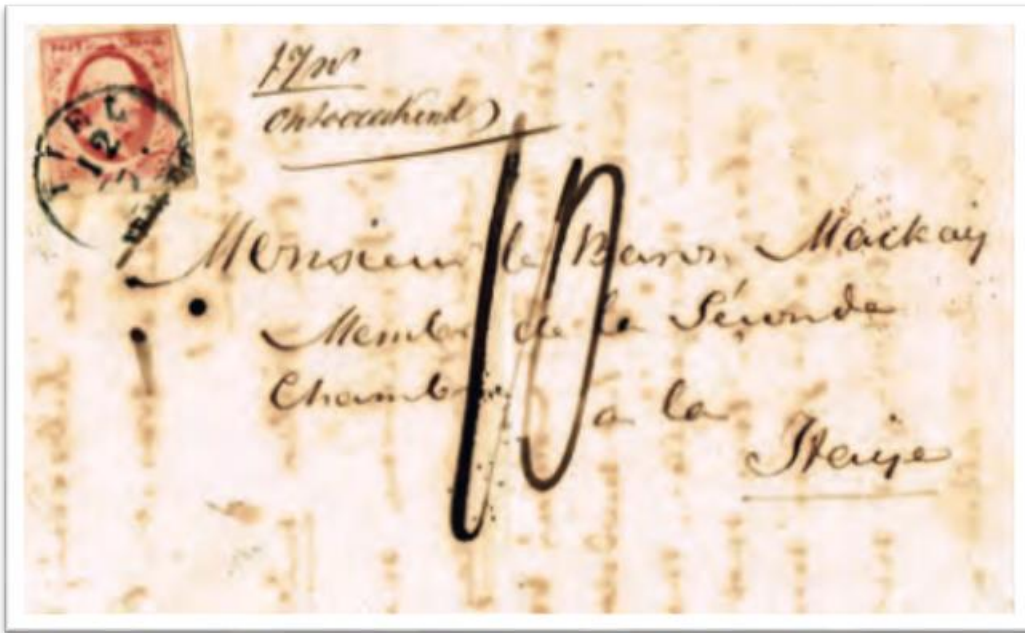 ontoereikend
10
Monsieur le Baron Mackay
Membre de la Séconde
Chambre
a la
Haije